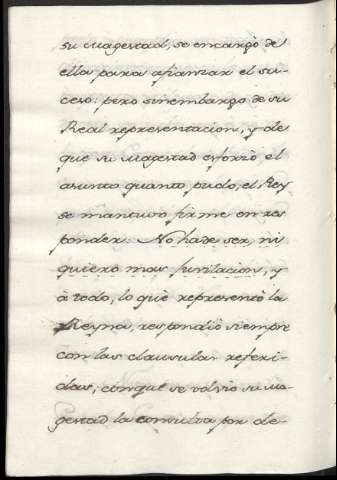 su Magestad, se encargò de
ella para afianzar el su-
ceso: pero sinembargo de su
Real representacion, y de
que su Magestad esforzó el
asunto quanto pudo, el Rey
se mantuvo firme en res
ponder: No ha de ser, ni
quiero mas Jurilacion, y
à todo, lo què representò la
Reyna, respondiò siempre
con las clausulas referi-
das; conque se volviò su Ma-
gestad la consulta por de-